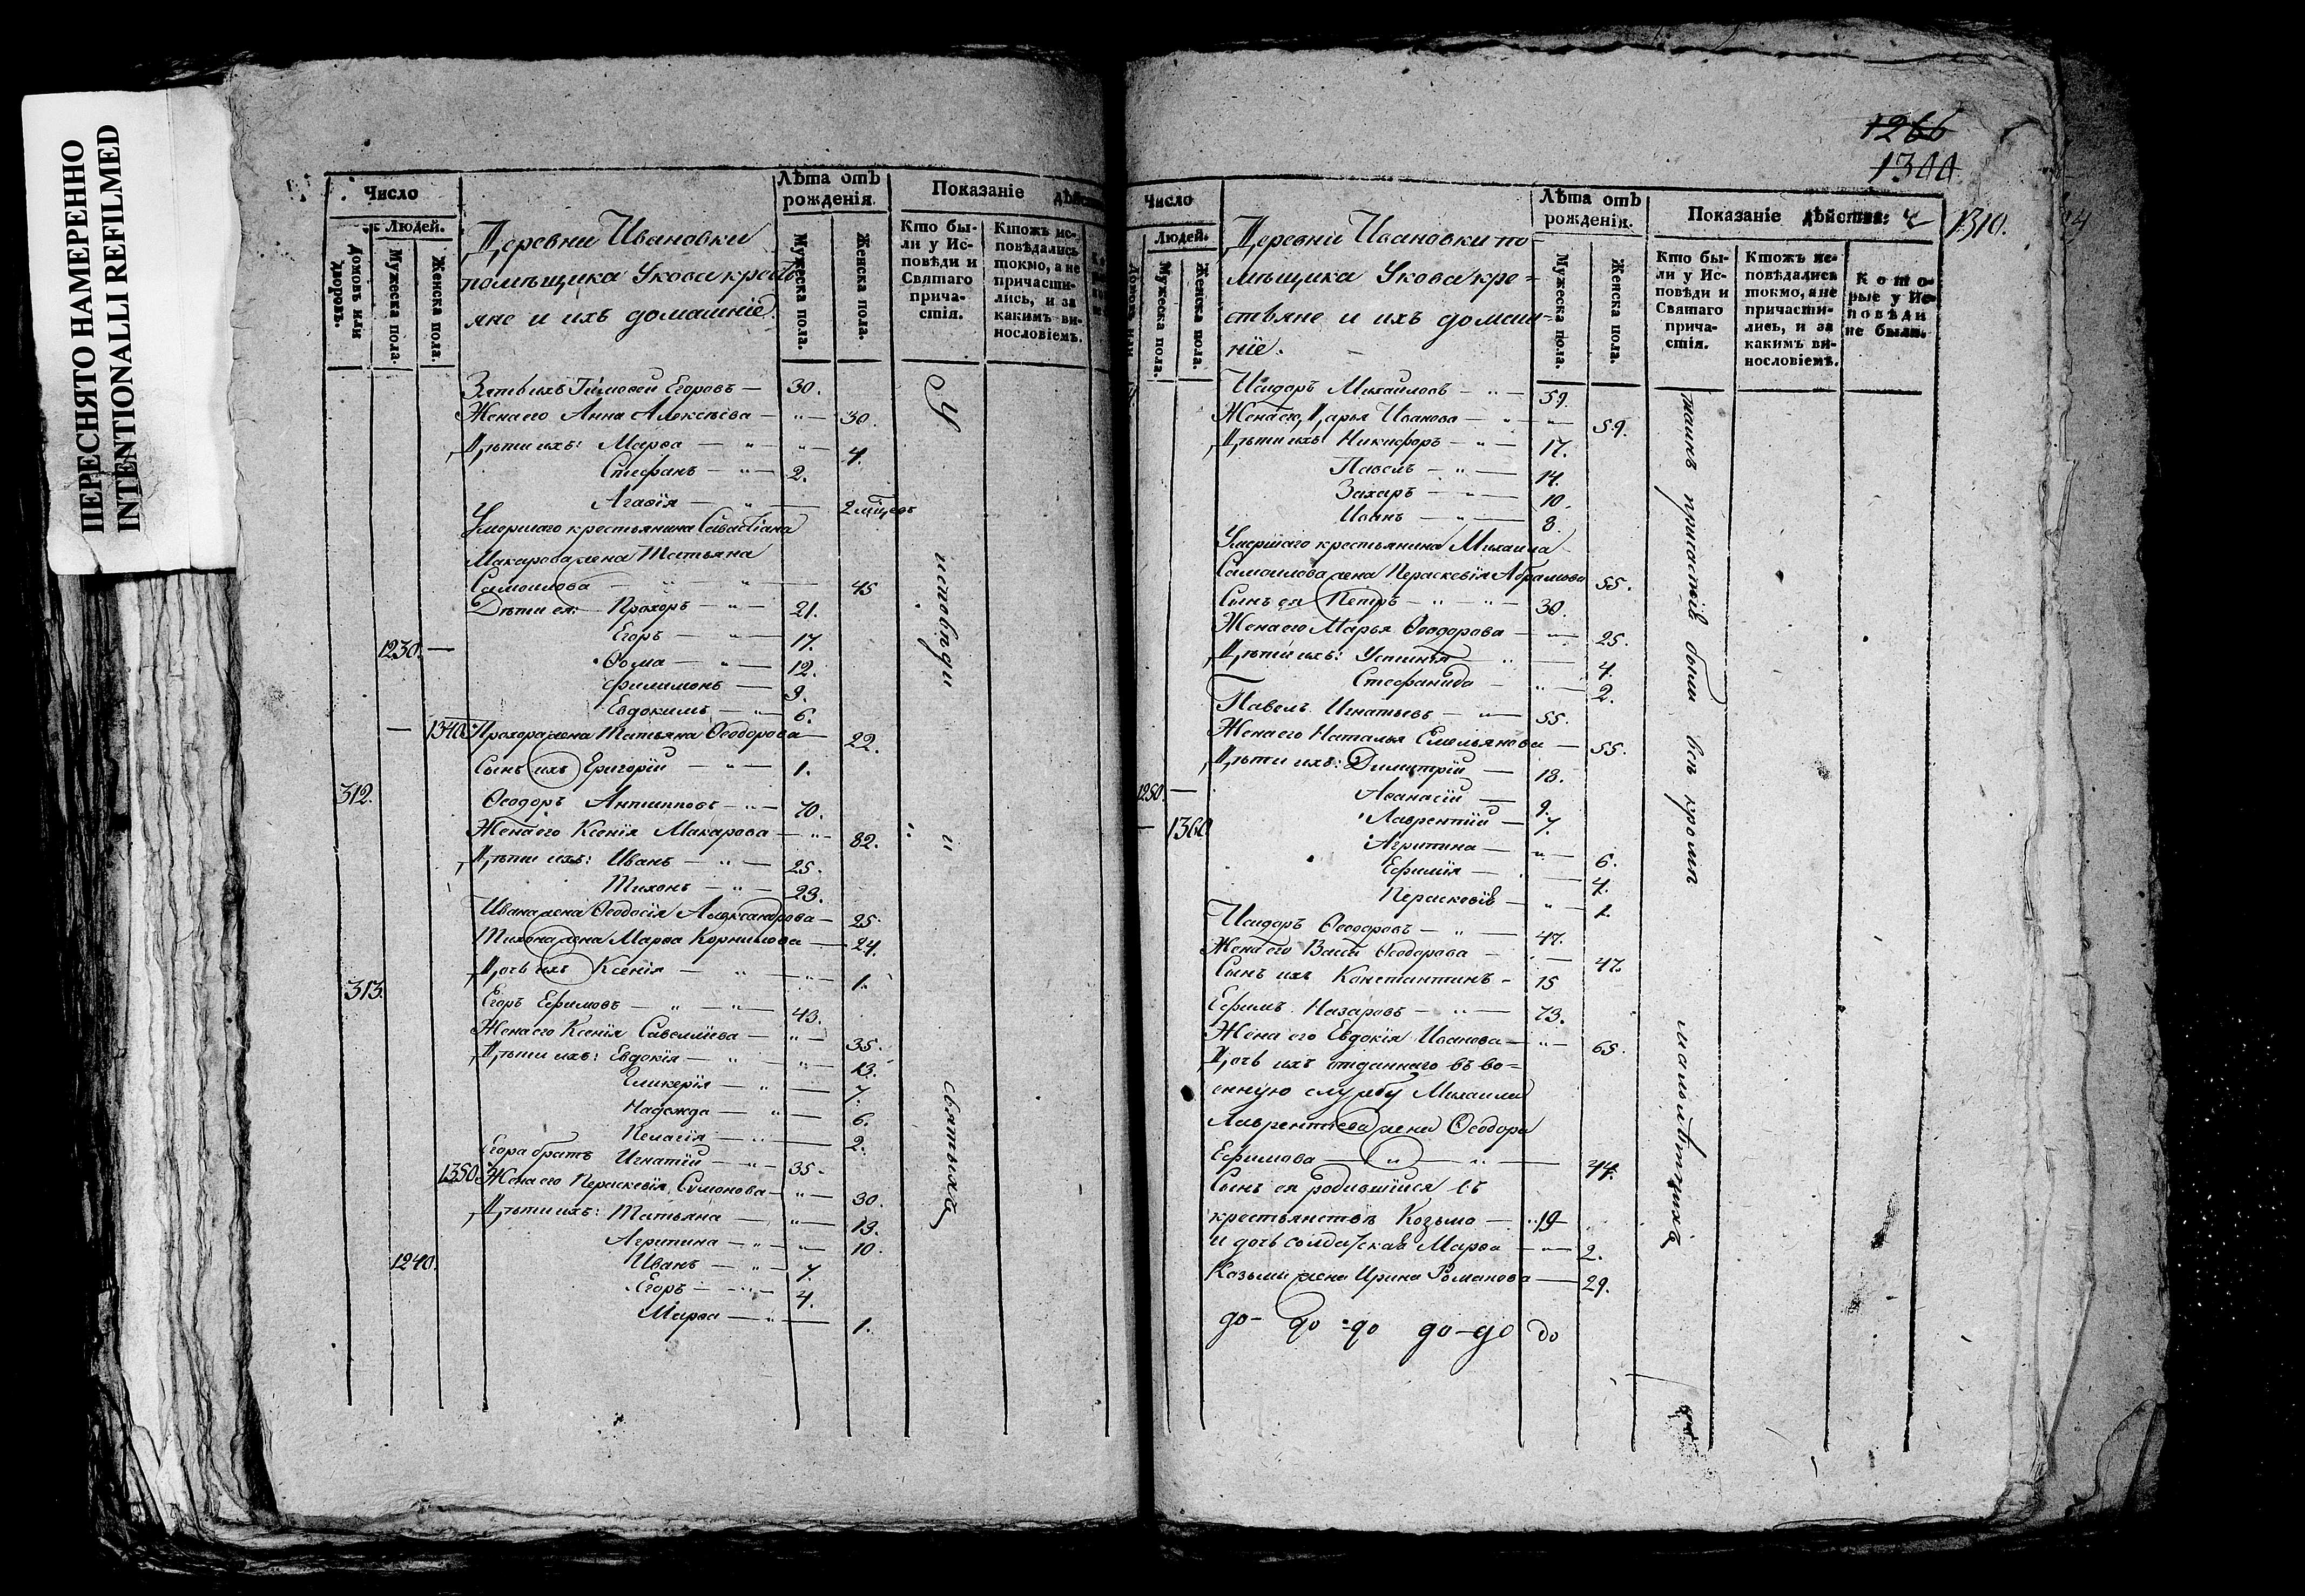 ПЕРЕСНЯТО НАМЕРЕННО
INTENTIONALLI REFILMED
Число
Людей.
Домовъ или дворовъ.
Мужеска пола.
Женска пола.
Деревни Ивановки
помѣщика Укова кресть
яне и ихъ домашніе.
Лѣта отъ рожденія.
Мужеска пола.
Женска пола.
Показаніе дѣйств
Кто бы-
ли у Ис-
повѣди и
Святаго
прича-
стія.
Ктожъ ис-
повѣдались
токмо, а не
причасти-
лись, и за
какимъ ви-
нословіемъ.
Зять ихъ Тимофей Егоровъ — 30.
Жена его Анна Алексѣева — " — 30.
Дѣти ихъ: Марѳа — " — " — 4.
Стефанъ — " — 2.
Агафія — " — 2 мцев
Умершаго крестьянина Савастіана
Макарова жена Татьяна
Самоилова — " — " — 45
Дѣти ея: Прохоръ — " — 21.
Егоръ — " — 17.
1230. — Ѳома — " — 12.
Филимонъ — 9.
Евдокимъ — " — 6.
— 1340. Прохора жена Татьяна Ѳеодорова — 22.
Сынъ ихъ Григорій — " — 1.
312. Ѳеодоръ Антиповъ — " — 70.
Жена его Ксенія Макарова — " — 82.
Дѣти ихъ: Иванъ — " — 25.
Тихонъ — " — 23.
Ивана жена Ѳеодосія Александрова — 25.
Тихона жена Марѳа Корнилова — 24.
Дочь ихъ Ксенія — " — " — 1.
313. Егоръ Ефимовъ — " — " — 43.
Жена его Ксенія Савелиева — " — 35.
Дѣти ихъ: Евдокія — " — " — 13.
Гликерія — " — 7.
Надежда — " — 6.
Пелагія — " — 2.
Егора братъ Игнатій — " — 35.
1350. Жена его Параскевія Симонова — " — 30.
Дѣти ихъ: Татьяна — " — 13.
Агрипина — " — " — 10.
1240. Иванъ — " — 7.
Егоръ — " — 4.
Марѳа — " — 1.
У исповѣди и святыхъ
1266
1300
1310.
Число
Людей.
Домовъ или
Мужеска пола.
Женска пола.
Деревни Ивановки по
мѣщика Укова кре=
стьяне и ихъ домаш=
ніе.
Лѣта отъ рожденія.
Мужеска пола.
Женска пола.
Показаніе дѣйства:
Кто бы-
ли у Ис-
повѣди и
Святаго
прича-
стія.
Ктожъ ис-
повѣдались
токмо, а не
причасти-
лись, и за
какимъ ви-
нословіемъ.
Кото-
рые у Ис-
повѣди
не были.
Исидоръ Михайловъ — " — 59.
Жена его Дарья Иванова — " — " — 59.
Дѣти ихъ: Никифоръ — " — 17.
Павелъ — " — 14.
Захаръ — " — 10.
Иванъ — " — 8.
Умершаго крестьянина Михаила
Самоилова жена Пераскевія Абрамова 55.
Сынъ ея Петръ — " — " — 30.
Жена его Марья Ѳеодорова — " — 25.
Дѣти ихъ: Устинія — " — 4.
Стефанида — " — 2.
Павелъ Игнатьевъ — " — 55.
Жена его Наталья Емельянова — 55.
Дѣти ихъ: Димитрій — 18.
1250. — Аѳанасій — 9.
— 1360 Лаврентій — 7.
Агрипина — " — 6.
Ефимія — 4.
Пераскевія — " — 1.
Исидоръ Ѳеодоровъ — " — 47.
Жена его Васса Ѳеодорова — 47.
Сынъ ихъ Константинъ — 15
Ефимъ Назаровъ — " — 73.
Жена его Евдокія Иванова — " — 65.
Дочь ихъ отданнаго въ во=
енную службу Михаила
Лаврентьева жена Ѳеодора
Ефимова — " — " — 44.
Сынъ ея родившійся въ
крестьянствѣ Козьма — 19
и дочь солдатская Марѳа — " — 2.
Казьмы жена Ирина Романова — 29.
до- до -до до-до до
таинъ причастіи были всѣ кромѣ малолѣтнихъ